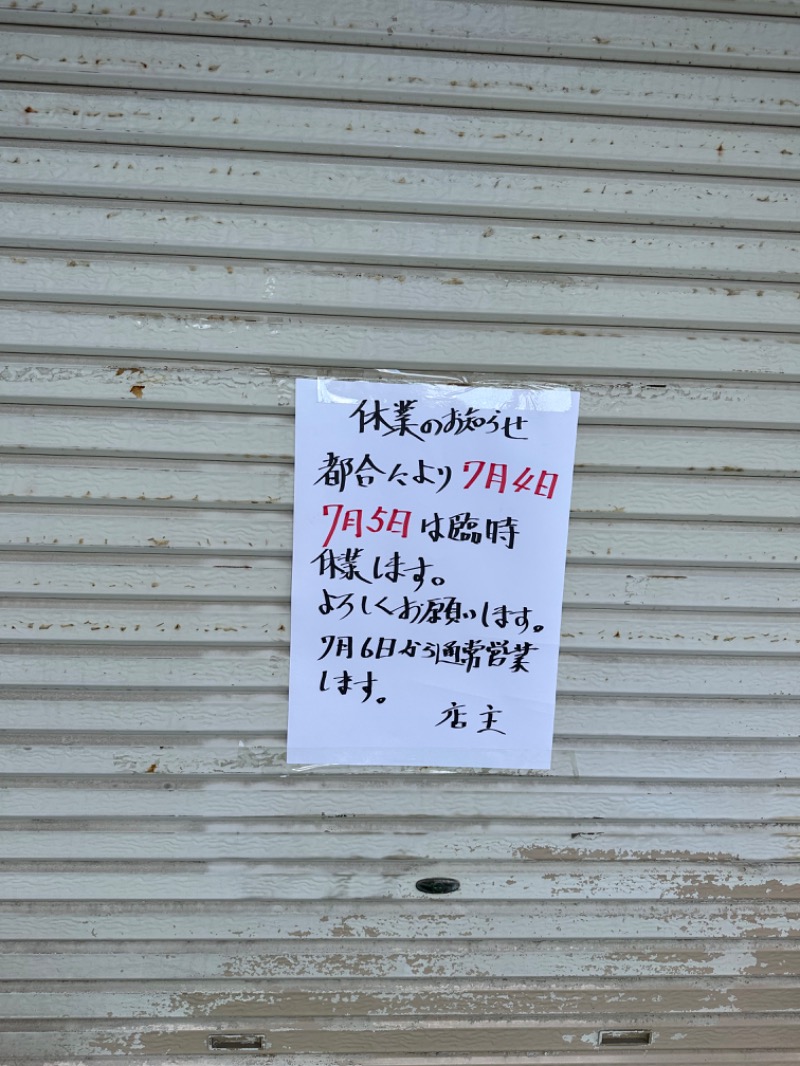 休業のお知らせ
都合により7月4日
7月5日は臨時
休業します。
よろしくお願いします。
7月6日から通常営業
します。
店主